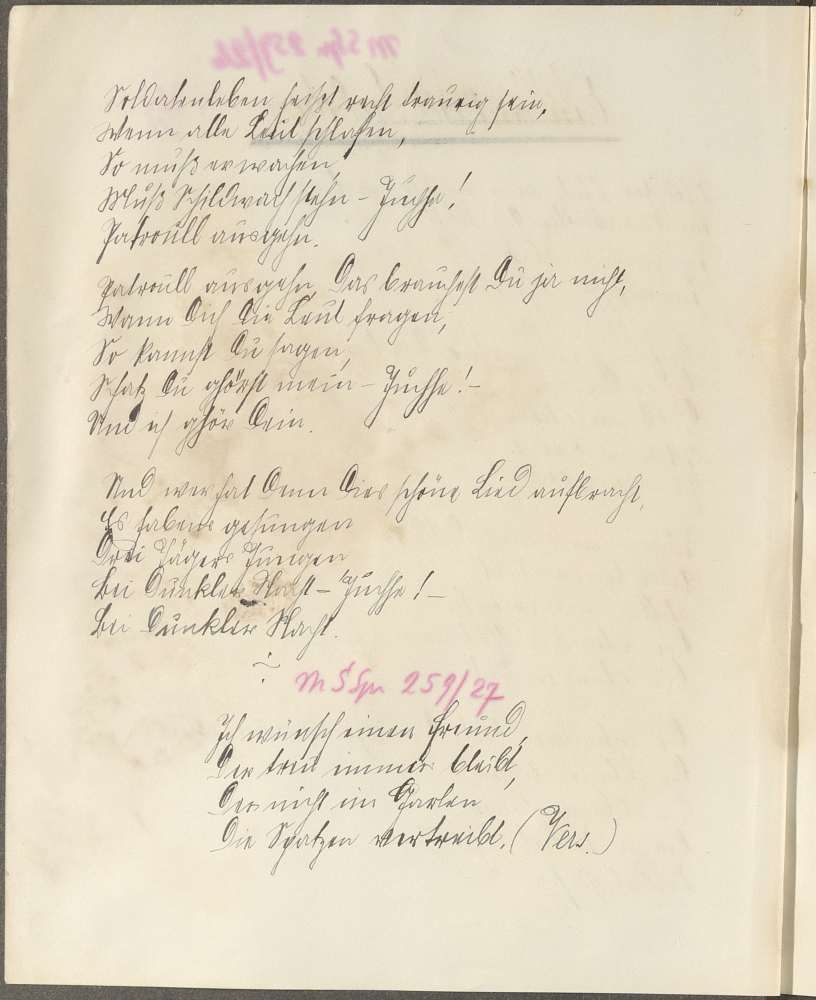 Soldatenleben heißt recht traurig sein,
Wenn alle Leut schlafen,
So muß er wachen,
Muß Schildwach stehn – Juchhe!
Patroull ausgehn.
Patroull ausgehn, Das brauchest Du ja nicht,
Wann Dich die Leut fragen,
So kannst Du sagen,
Schatz Du ghörst mein – Juchhe! –
Und ich ghör Dein.
Und wer hat denn dies schöne Lied aufbracht,
Es habens gesungen
Drei Jägers Jungen
Bei Dunkler Nacht – Juchhe! –
Bei Dunkler Nacht.
M S Spr 259/27
Ich wünsch einen Freund,
Der treu immer bleibt,
Der nicht im Garten
Die Spatzen vertreibt. (Vers.)